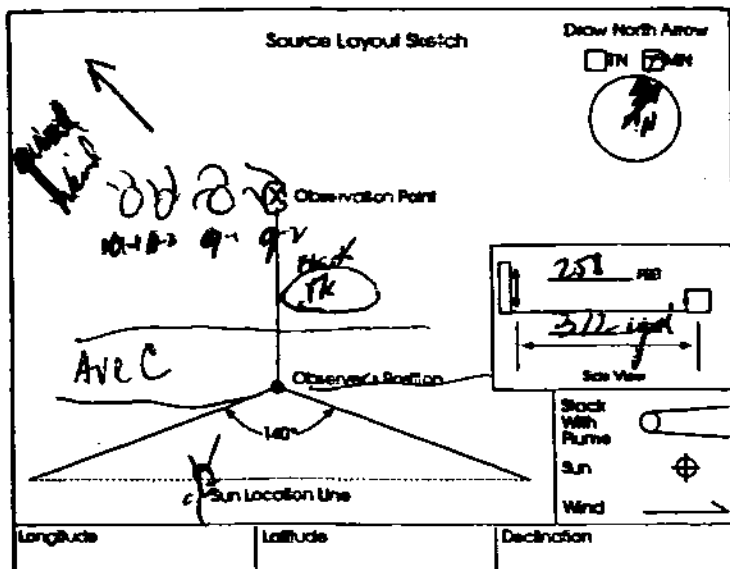 Source Layout Sketch
Draw North Arrow
TN MN
N
Wind
Observation Point
10-1 9-1 9-2
TK
258 FEET
Side View
Ave C
Observer's Position
140°
Sun Location Line
Stack
With
Plume
Sun
Wind
Longitude
Latitude
Declination